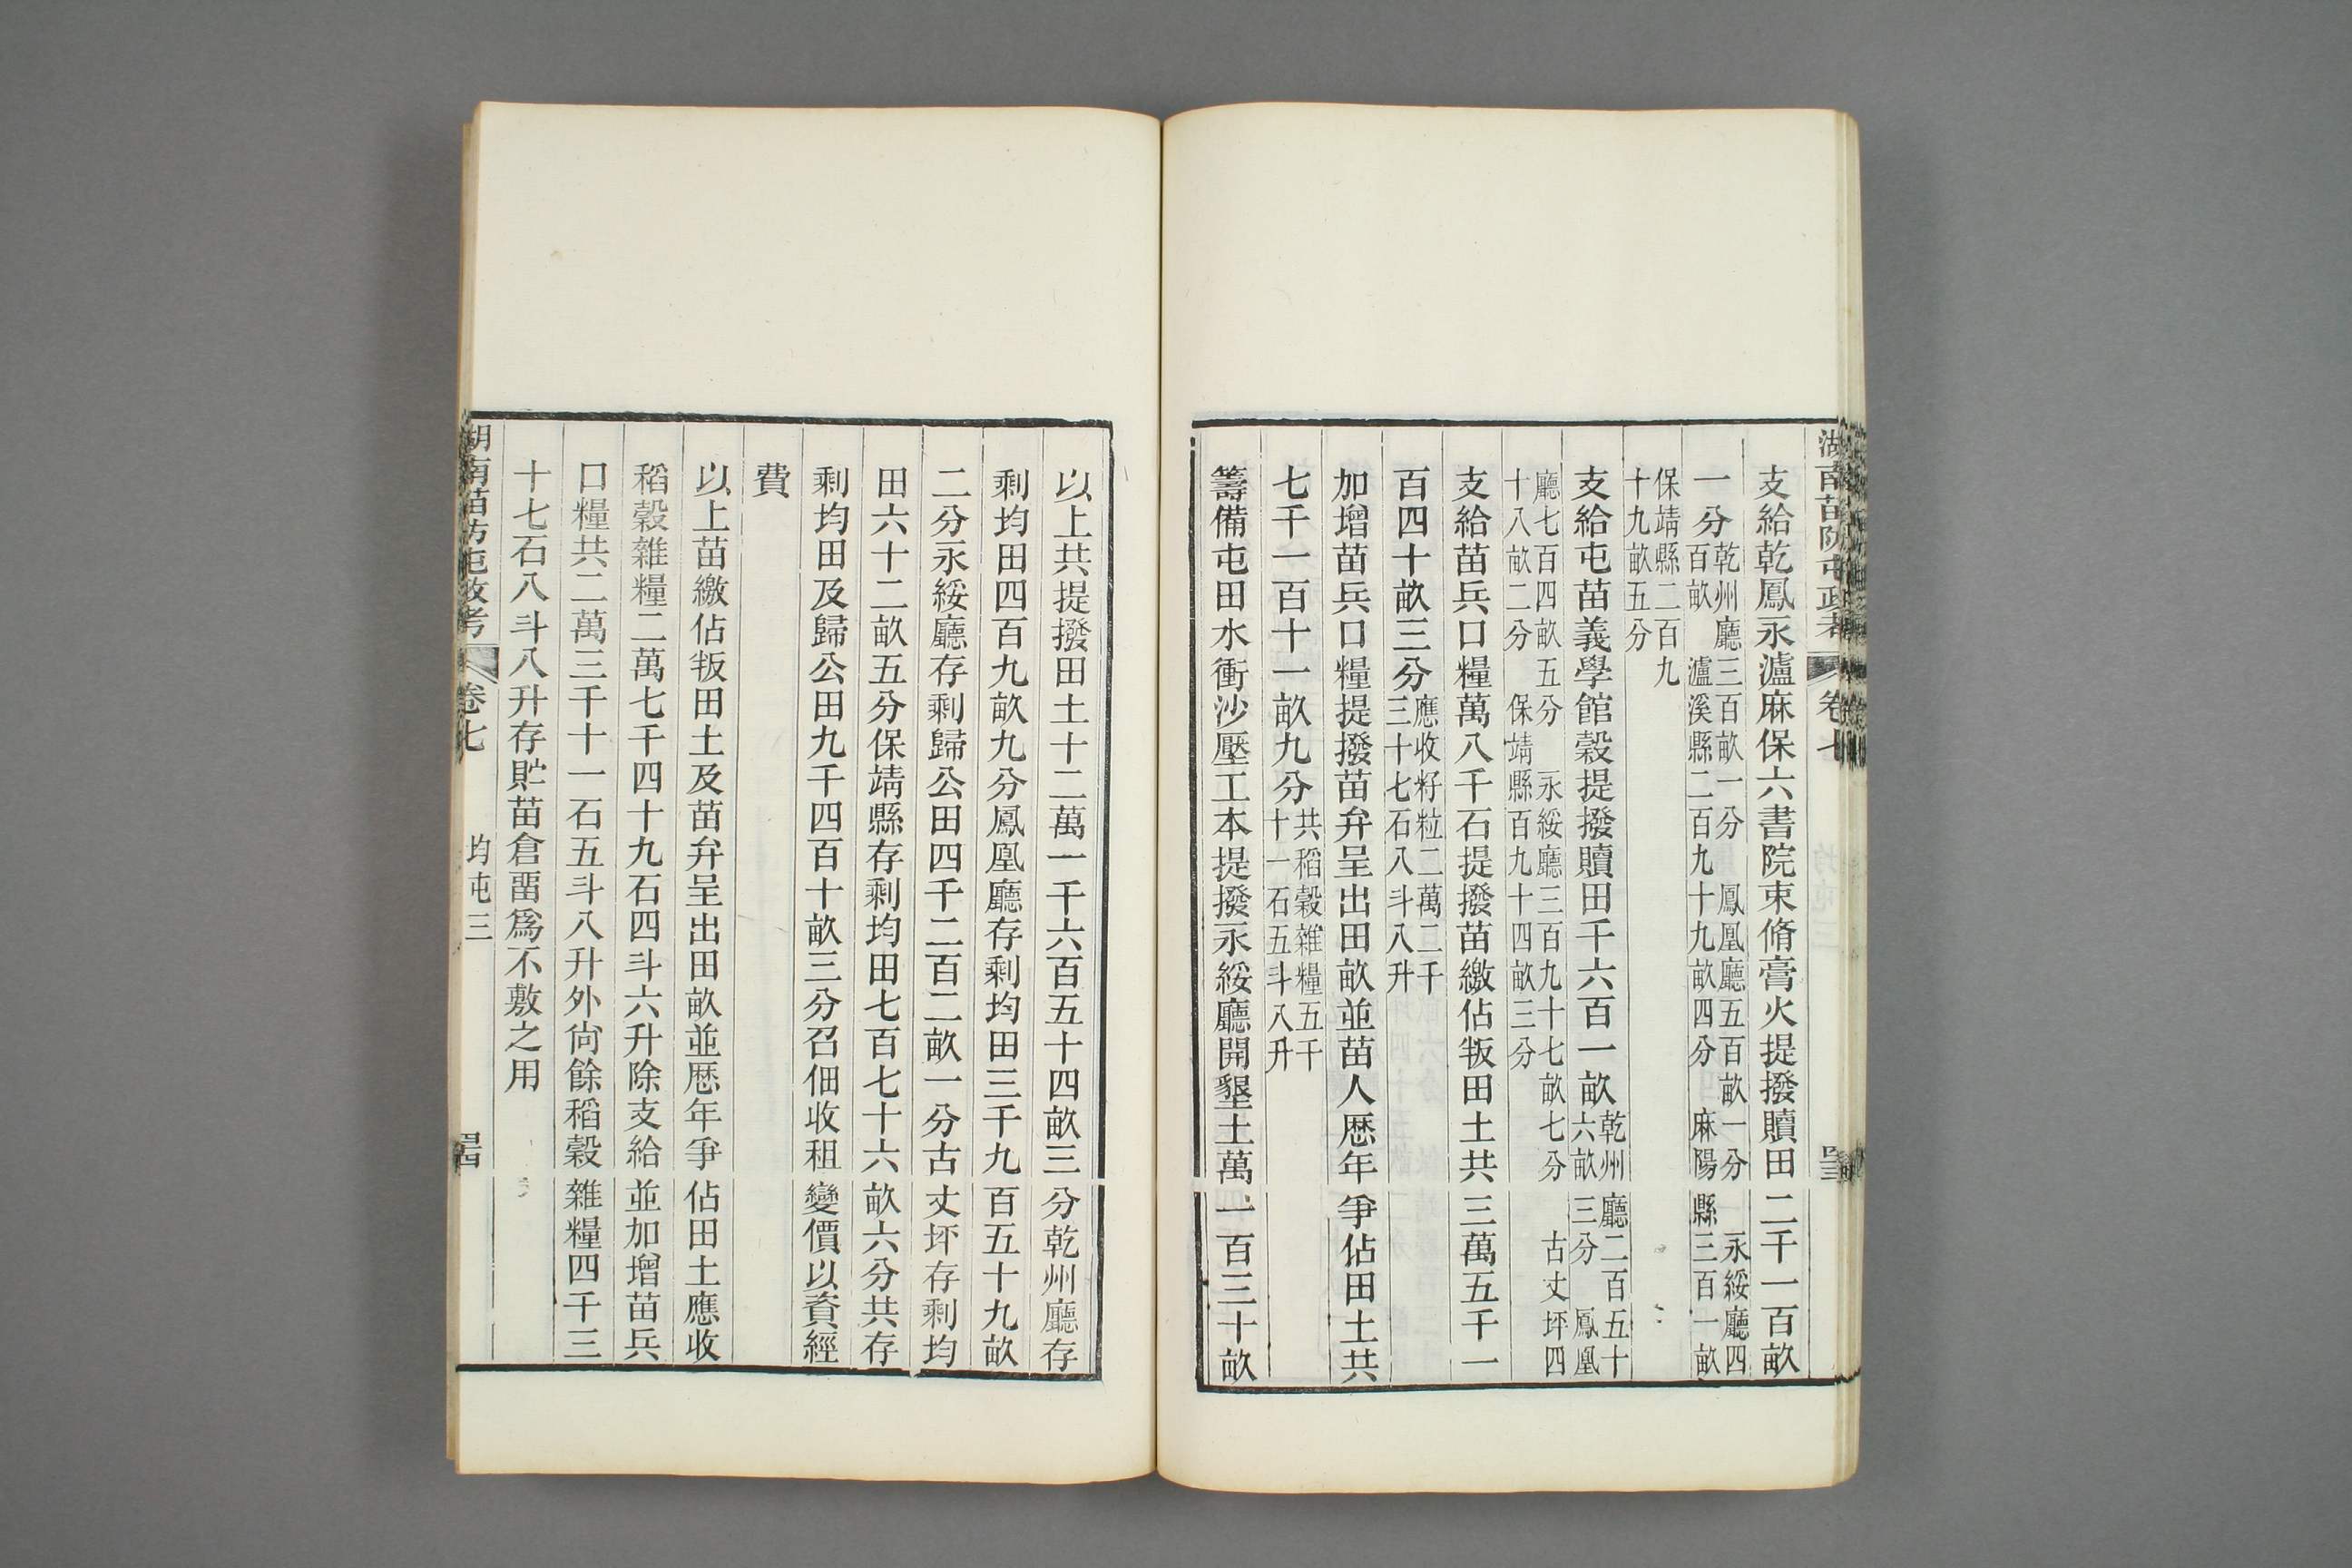 湖南苗防屯政考 卷七 均屯三 四三
支給乾鳳永瀘麻保六書院束脩膏火提撥贖田二千一百畝
一分乾州廳三百畝一分 鳳凰廳五百畝一分 永綏廳四百畝 瀘溪縣二百九十九畝四分 麻陽縣三百一畝
保靖縣二百九十九畝五分
支給屯苗義學館穀提撥贖田千六百一畝乾州廳二百五十六畝三分 鳳凰
廳七百四畝五分 永綏廳三百九十七畝七分 古丈坪四十八畝二分 保靖縣百九十四畝三分
支給苗兵口糧萬八千石提撥苗繳佔叛田土共三萬五千一
百四十畝三分應收籽粒二萬二千三十七石八斗八升
加增苗兵口糧提撥苗弁呈出田畝並苗人歷年爭佔田土共
七千一百十一畝九分共稻穀雜糧五千十一石五斗八升
籌備屯田水衝沙壓工本提撥永綏廳開墾土萬一百三十畝
以上共提撥田土十二萬一千六百五十四畝三分乾州廳存
剩均田四百九畝九分鳳凰廳存剩均田三千九百五十九畝
二分永綏廳存剩歸公田四千二百二畝一分古丈坪存剩均
田六十二畝五分保靖縣存剩均田七百七十六畝六分共存
剩均田及歸公田九千四百十畝三分召佃收租變價以資經
費
以上苗繳佔叛田土及苗弁呈出田畝並歷年爭佔田土應收
稻穀雜糧二萬七千四十九石四斗六升除支給並加增苗兵
口糧共二萬三千十一石五斗八升外尙餘稻穀雜糧四千三
十七石八斗八升存貯苗倉畱爲不敷之用
湖南苗防屯政考 卷七 均屯三 四四